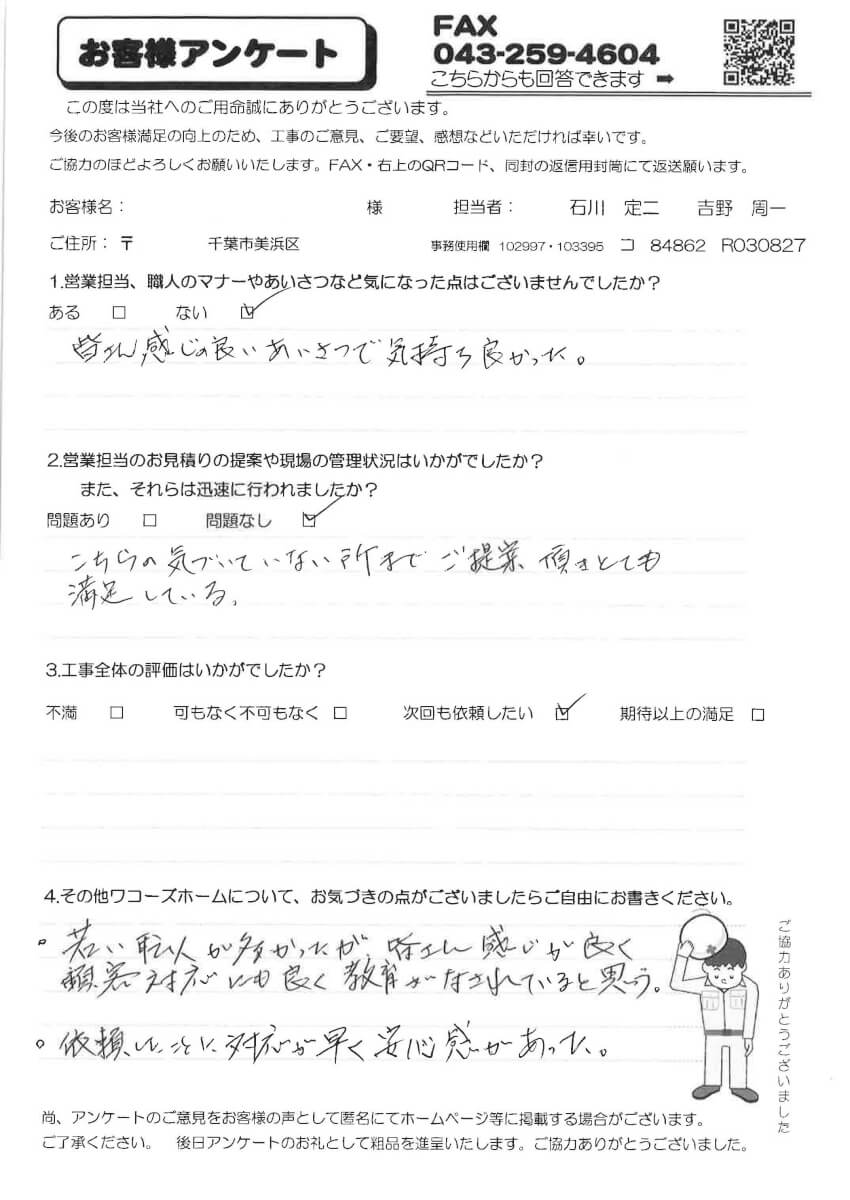 お客様アンケート
FAX
043-259-4604
こちらからも回答できます ➡
この度は当社へのご用命誠にありがとうございます。
今後のお客様満足の向上のため、工事のご意見、ご要望、感想などいただければ幸いです。
ご協力のほどよろしくお願いいたします。FAX・右上のQRコード、同封の返信用封筒にて返送願います。
お客様名： 様 担当者： 石川 定二 吉野 周一
ご住所：〒 千葉市美浜区 事務使用欄 102997・103395 コ 84862 R030827
1.営業担当、職人のマナーやあいさつなど気になった点はございませんでしたか？
ある □ ない ☑
皆さん感じの良いあいさつで気持ち良かった。
2.営業担当のお見積りの提案や現場の管理状況はいかがでしたか？
また、それらは迅速に行われましたか？
問題あり □ 問題なし ☑
こちらの気づいていない所までご提案頂きとても
満足している。
3.工事全体の評価はいかがでしたか？
不満 □ 可もなく不可もなく □ 次回も依頼したい ☑ 期待以上の満足 □
4.その他ワコーズホームについて、お気づきの点がございましたらご自由にお書きください。
。若い職人が多かったが皆さん感じが良く
顧客対応にも良く教育がなされていると思う。
。依頼したことに対応が早く安心感があった。
ご協力ありがとうございました
尚、アンケートのご意見をお客様の声として匿名にてホームページ等に掲載する場合がございます。
ご了承ください。 後日アンケートのお礼として粗品を進呈いたします。ご協力ありがとうございました。